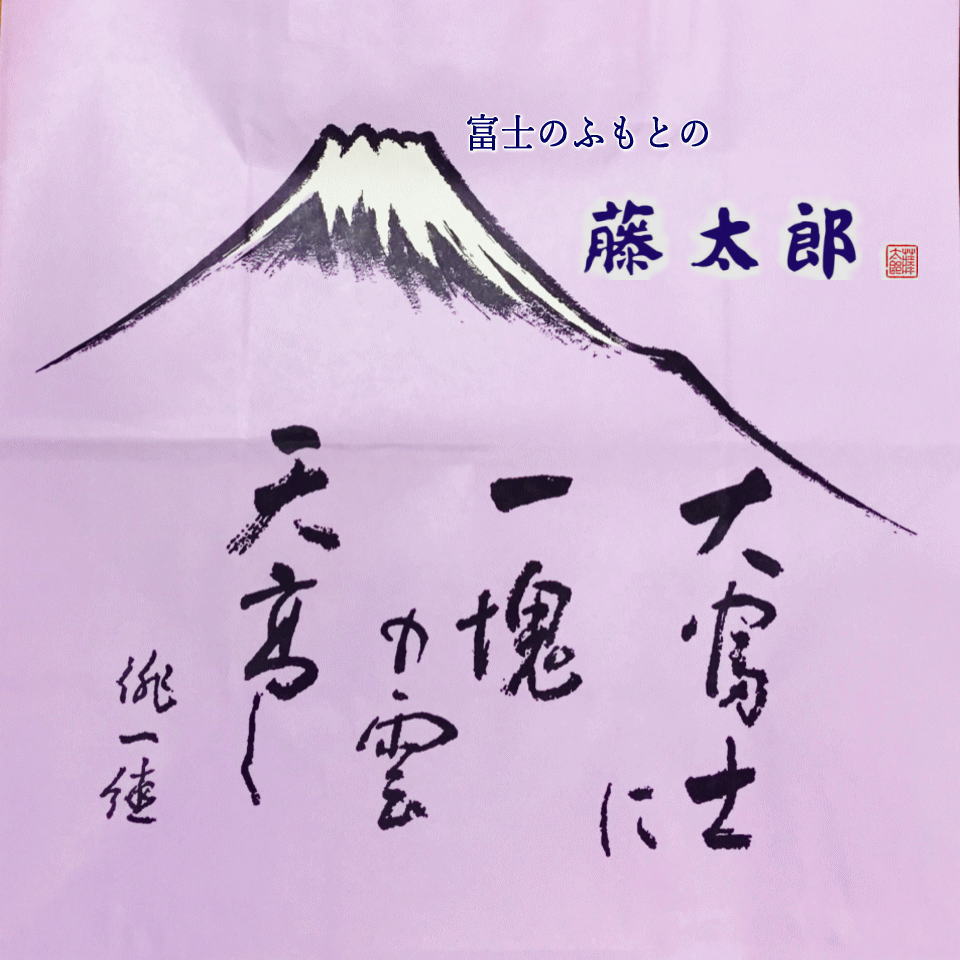 富士のふもとの
藤太郎
大富士に
一塊の雲
天高し